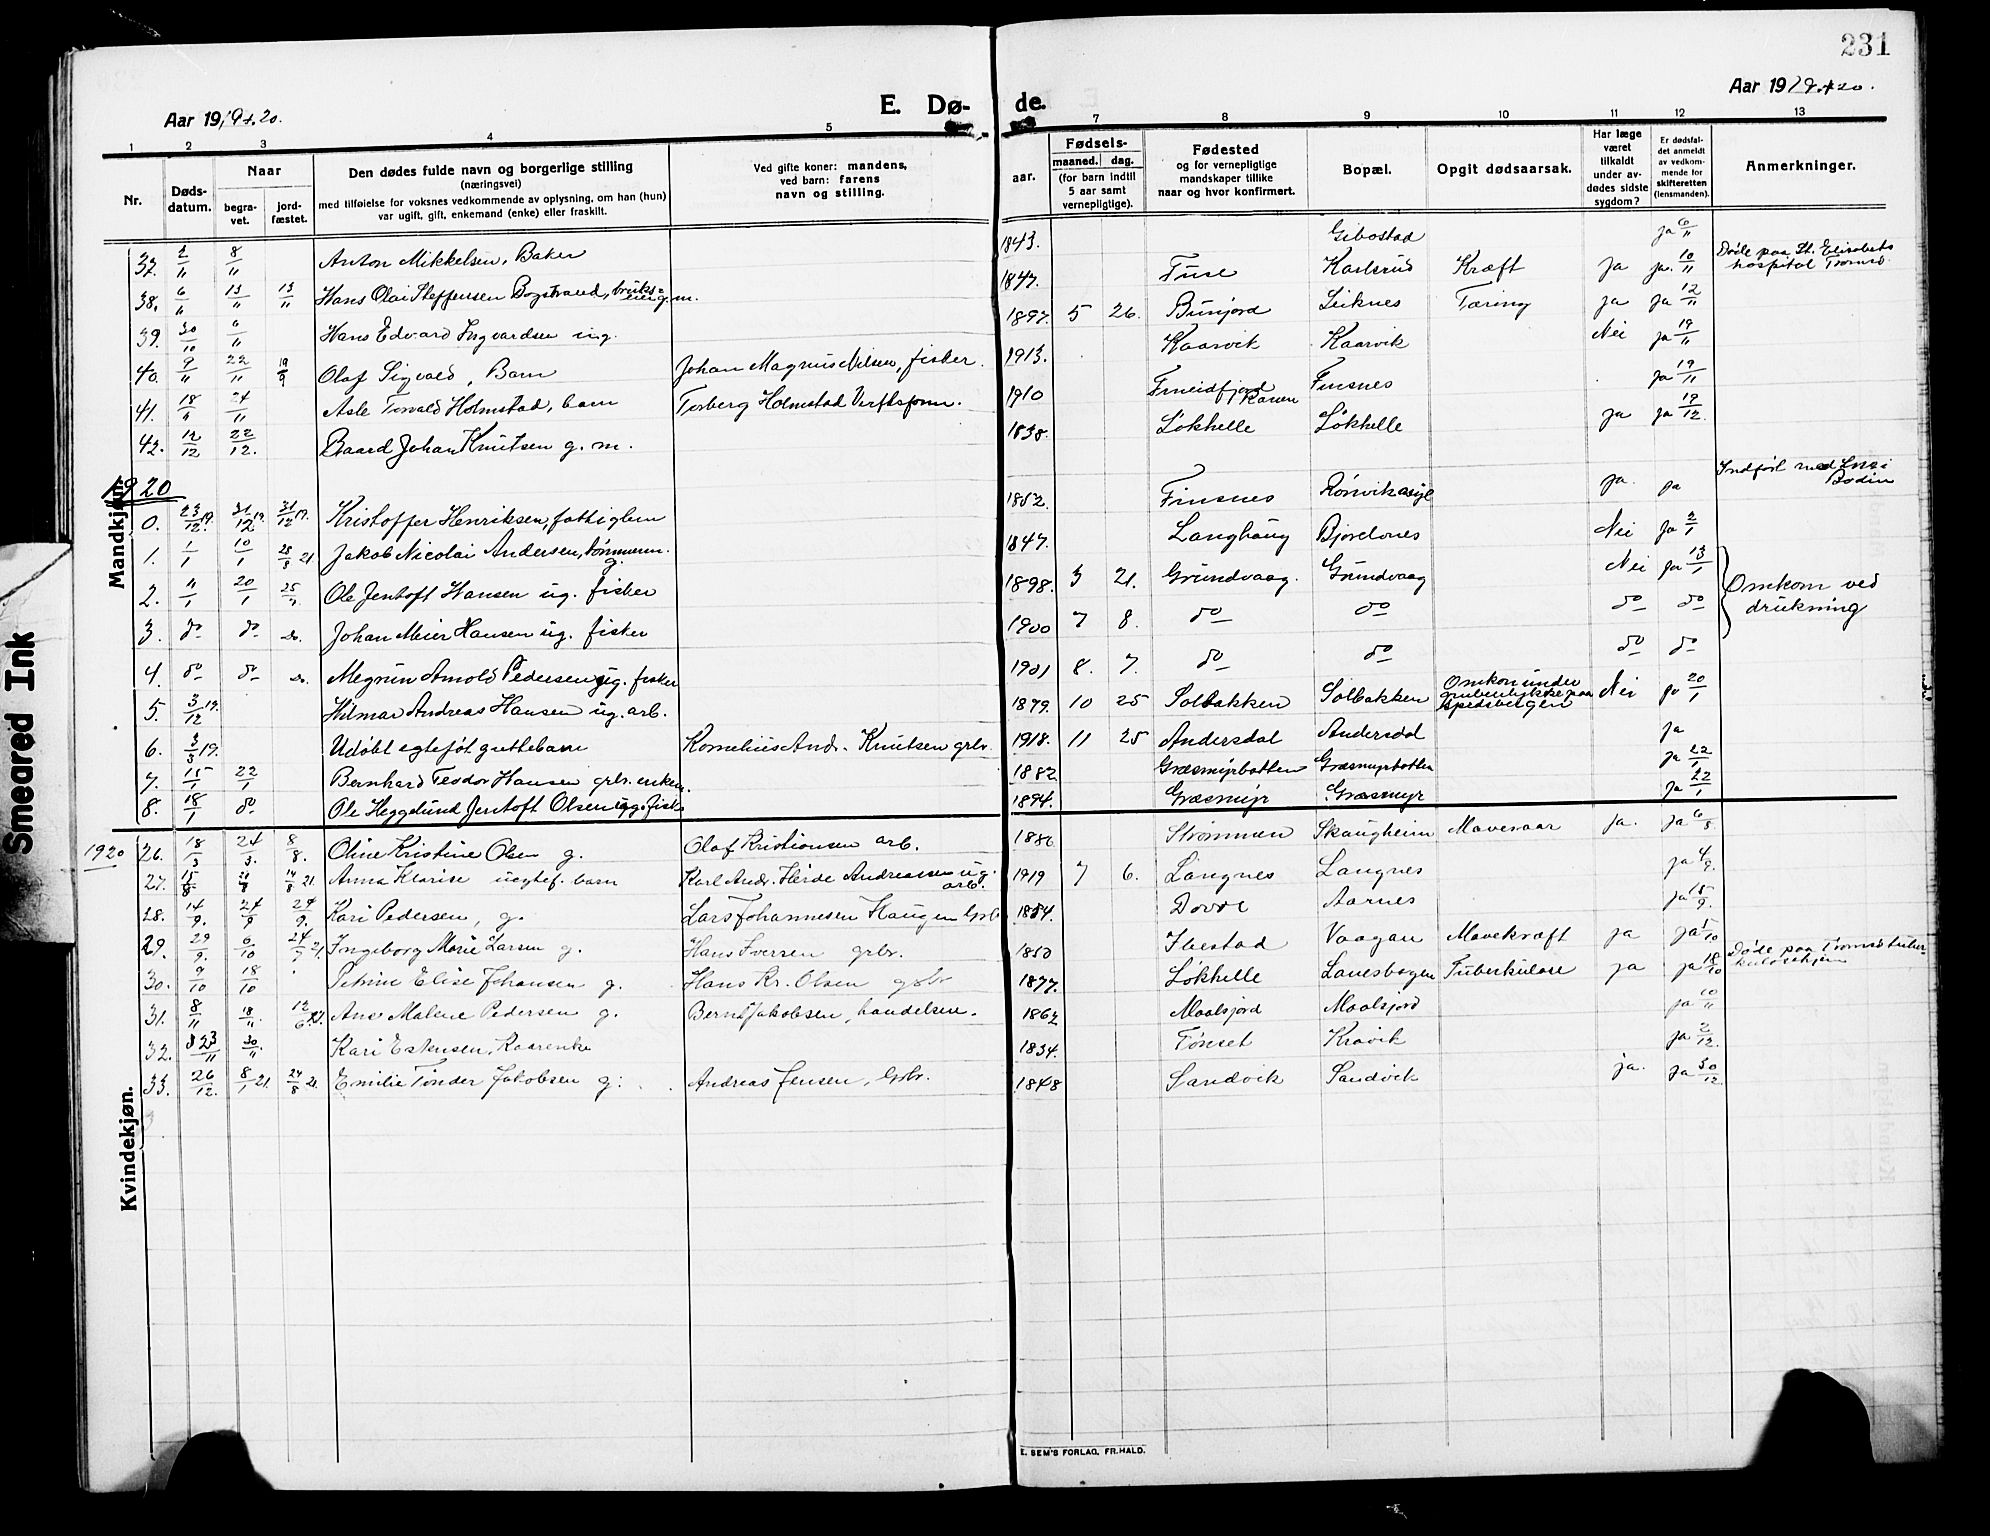 231
Aar 1919 + 20.
E. Dø-
de.
Aar 1919 + 20.
1 2 3 4 5 7 8 9 10 11 12 13
Nr.
Døds-
datum.
Naar
begra-
vet.
jord-
fæstet.
Den dødes fulde navn og borgerlige stilling
(næringsvei)
med tilføielse for voksnes vedkommende av oplysning, om han (hun)
var ugift, gift, enkemand (enke) eller fraskilt.
Ved gifte koner: mandens,
ved barn: farens
navn og stilling.
aar.
Fødsels-
maaned. dag.
(for barn indtil
5 aar samt
vernepligtige).
Fødested
og for vernepligtige
mandskaper tillike
naar og hvor konfirmert.
Bopæl.
Opgit dødsaarsak.
Har læge
været
tilkaldt
under av-
dødes sidste
sygdom?
Er dødsfal-
det anmeldt
av vedkom-
mende for
skifteretten
(lensmanden).
Anmerkninger.
Mandkjøn.
37. 2/11 8/11 Anton Mikkelsen, Baker 1843. Gibostad ja 6/11
38. 6/11 13/11 13/11 Hans Olai Steffensen Bogstrand, bruks- g.m. 1847. Fuse Karlsrud Kræft ja ja 10/11 Døde paa St. Elisabets
hospital Tromsø.
39. 30/10 6/11 Hans Edvard Ingvardsen ug. 1897. 5 26. Leiknes Tæring ja ja 12/11
40. 9/11 22/11 Olaf Sigvald, Barn Johan Magnus Nilsen, fisker. 1913. Kaarvik Kaarvik Nei ja 19/11
41. 18/11 24/11 Asle Torvald Holmstad, barn Torberg Holmstad 1910 Finsnes ja 19/11
42. 12/12 22/12. Baard Johan Knutsen g. m. 1838. Løkhelle Løkhelle ja ja 19/12.
1920
0. 23/12 19. 31/12 19. 31/12 19. Kristoffer Henriksen, fattiglem 1852. Finsnes Rønvikasyl ja. ja Indført med
Bodin
1. 1/1 10/1 28/8 21 Jakob Nicolai Andersen, g. 1847. Langhaug Bjorelvnes Nei ja 2/1
2. "/1 20/1 Ole Jentoft Hansen ug. fisker 1898 3 21. Grundvaag. Grundvaag Nei ja 13/1 Omkom ved
drukning
3. do do do. Johan Meier Hansen ug. fisker 1900 7 8. do do do do
4. do do do. Magnun Arnold Pedersen ug. fisker 1901 8. 7. do do do do
5. 3/12 19. Hilmar Andreas Hansen ug. arb. 1879. 10 25 Solbakken Solbakken Omkom under
grubeulykke paa
Spidsbergen Nei ja 20/1
6. 3/3 19. Udøbt egteføt guttebarn Kornelius Andr. Knutsen grbr. 1918. 11 25 Andersdal Andersdal ja
7. 15/1 22/1 Bernhard Teodor Hansen grbr. enkem. 1882 Græsmyrbotten Græsmyrbotten ja 22/1
8. 18/1 do Ole Heggelund Jentoft Olsen ug. fisk 1894. Græsmyr Græsmyr ja 22/1
Kvindekjøn.
1920 26. 18/3 24/3. 8/8. Oline Kristine Olsen g. Olaf Kristiansen arb. 1886 Strømmen Skaugheim Mavesaar ja. ja 6/5
27. 15/8 21/8 14/8 21. Anna Klarise uegtef. barn Karl Andr. Heide Andreassen ug.
arb. 1919 7 6. Langnes Langnes ja 4/9.
28. 14/9. 24/9 24/9. Kari Pedersen, g. Lars Johannesen Haugen Grb 1854. Dovre Aarnes ja 15/9.
29. 29/9. 6/10 24/7 21. Ingeborg Marie Larsen g. Hans Iversen grbr. 1850 Ibestad Vaagan Mavekræft ja ja 1/10
30. 9/10 18/10 Petrine Elise Johansen g. Hans Kr. Olsen gbr 1877. Løkhelle Lanesbogen Tuberkulose ja ja 18/10 Døde paa Tromsø tuber-
kulosehjem
31. 8/11 18/11. Ane Malene Pedersen g. Bernt Jakobsen, handelsm. 1862 Maalsjord Maalsjord ja 10/11
32. 23/11 30/11. Kari Estensen, Kaarenke 1834. Tønset Kravik ja 2/12.
33. 26/12. 8/1 21. 24/8 21. Emilie Tønder Jakobsen g. Andreas Jensen, Gbr. 1848 Sandvik Sandvik ja. ja 30/12
E. SEM'S FORLAG, FR.HALD.
Smeared Ink